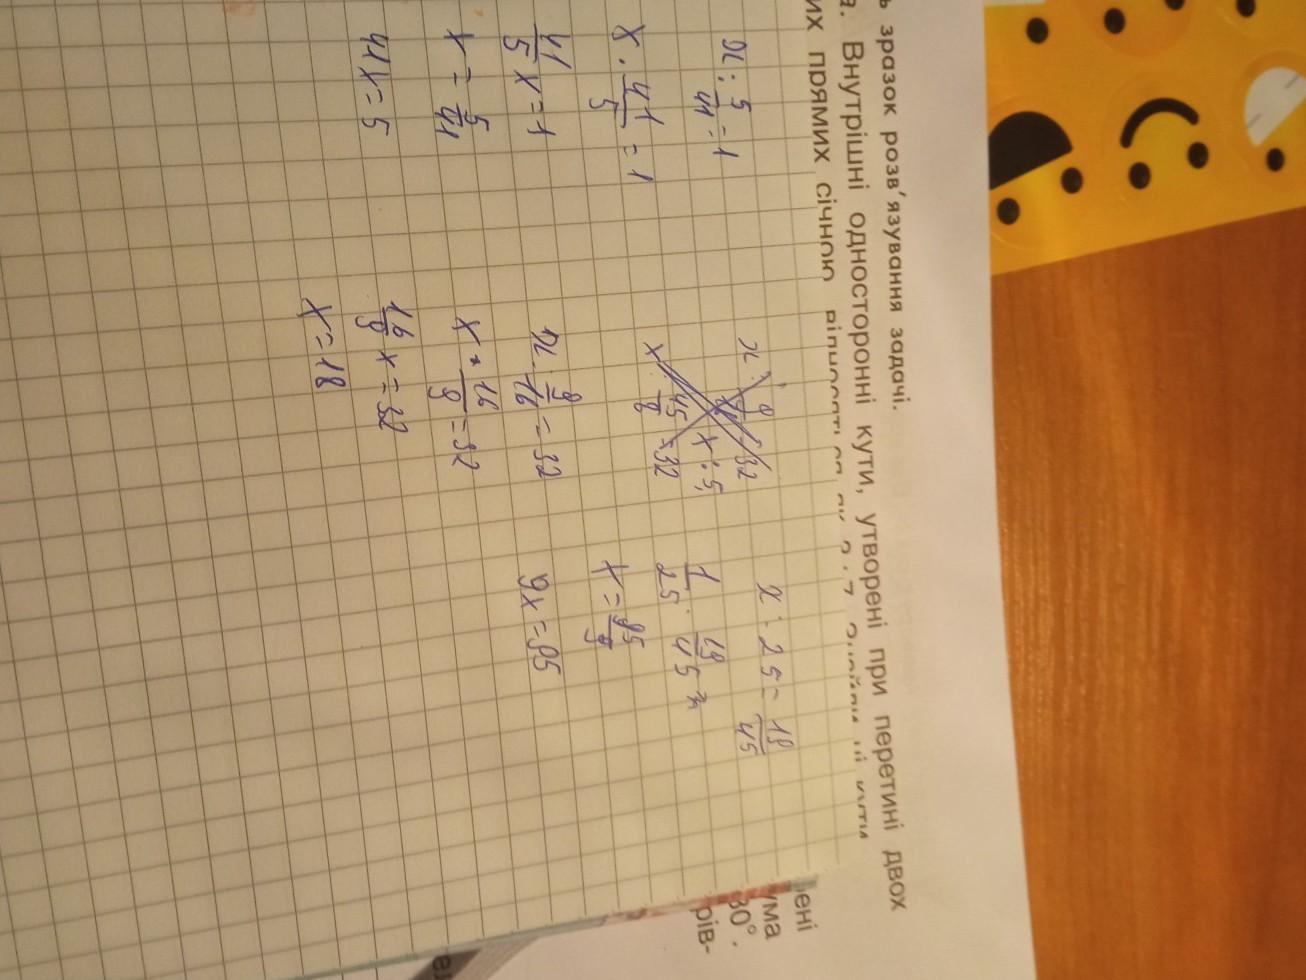 ь зразок розв'язування задачі.
а. Внутрішні односторонні кути, утворені при перетині двох
их прямих січною
ені
ума
80°.
рів-
x : 5/41 = 1
x · 41/5 = 1
41/5 x = 1
x = 5/41
41x = 5
x : 9/16 = 32
x · 16/9 = 32
16/9 x = 32
x = 18
x : 25 = 18/45
x = 95/9
9x = 95